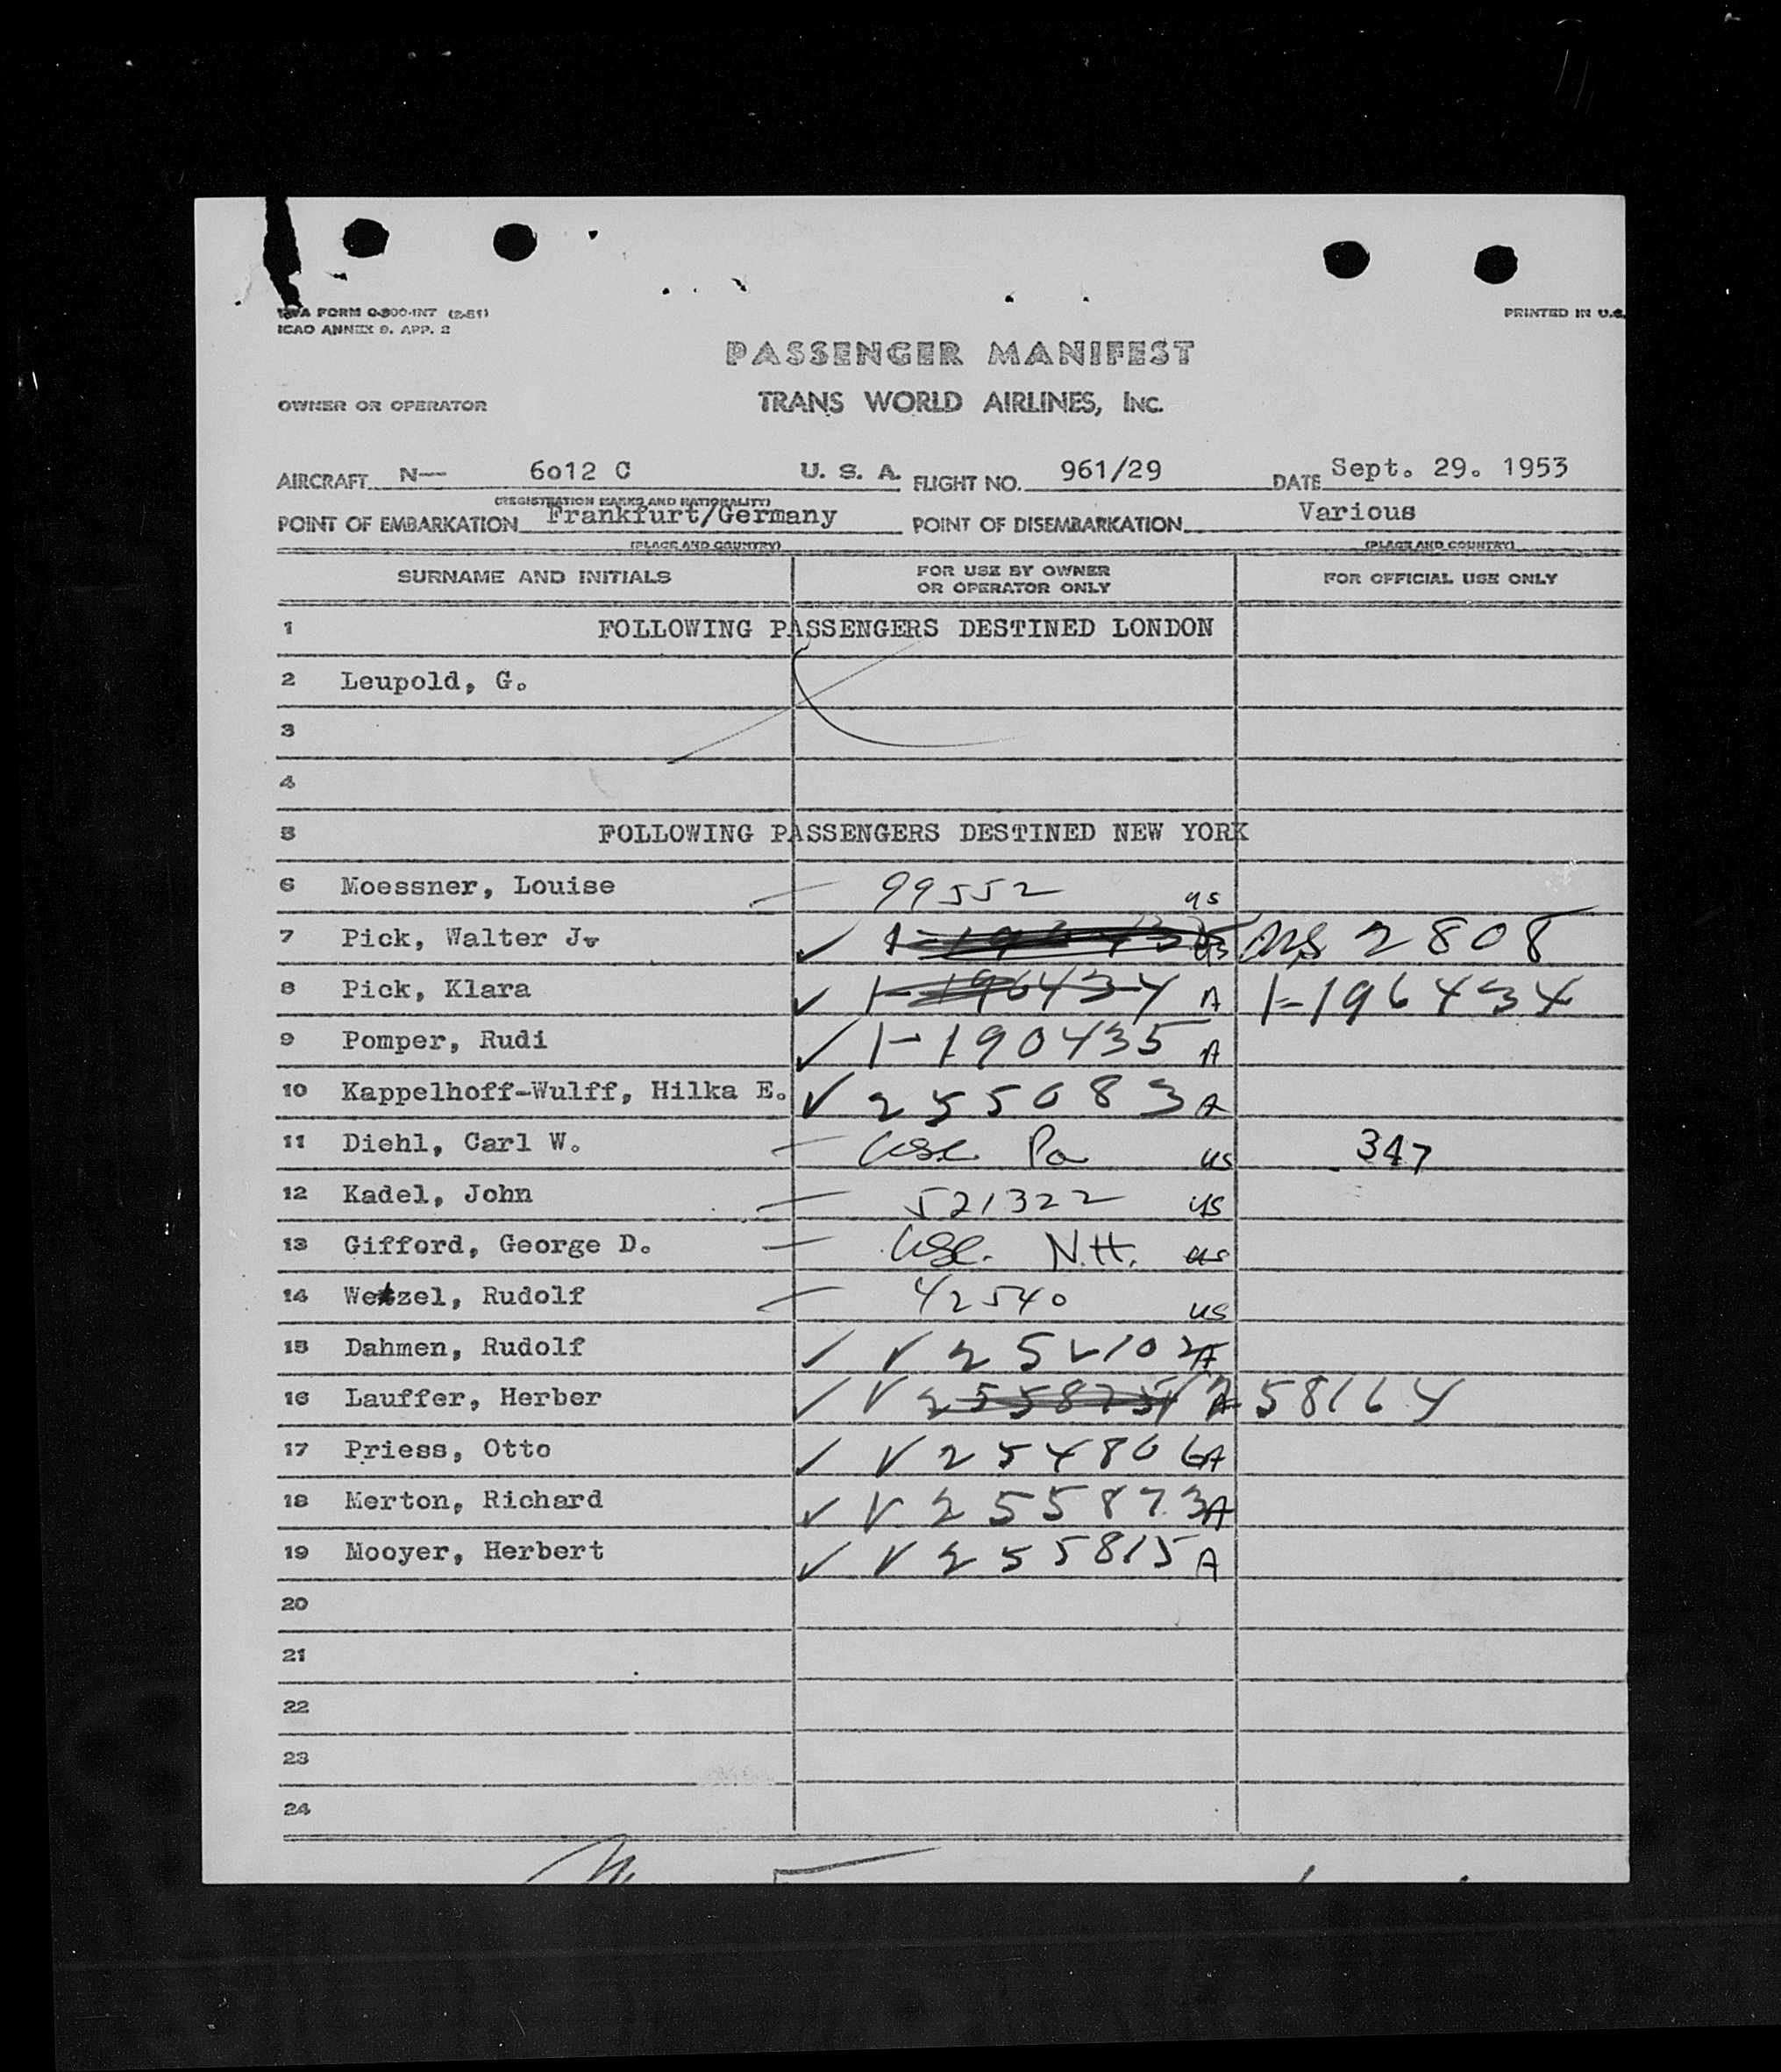 TWA FORM O-300-INT (2-51)
ICAO ANNEX 9. APP. 2
PRINTED IN U.S.
PASSENGER MANIFEST
OWNER OR OPERATOR TRANS WORLD AIRLINES, INC.
AIRCRAFT N— 6o12 C U. S. A. FLIGHT NO. 961/29 DATE Sept. 29. 1953
(REGISTRATION MARKS AND NATIONALITY)
POINT OF EMBARKATION Frankfurt/Germany POINT OF DISEMBARKATION Various
(PLACE AND COUNTRY) (PLACE AND COUNTRY)
SURNAME AND INITIALS FOR USE BY OWNER OR OPERATOR ONLY FOR OFFICIAL USE ONLY
1 FOLLOWING PASSENGERS DESTINED LONDON
2 Leupold, G.
3
4
5 FOLLOWING PASSENGERS DESTINED NEW YORK
6 Moessner, Louise — 99552 us
7 Pick, Walter Jr ✓ us 2808
8 Pick, Klara ✓ 1-196434 A 1-196434
9 Pomper, Rudi ✓ 1-190435 A
10 Kappelhoff-Wulff, Hilka E. V 255083 A
11 Diehl, Carl W. — usc Pa us 347
12 Kadel, John — 521322 us
13 Gifford, George D. — usc. N.H. us
14 Wetzel, Rudolf — 42540 us
15 Dahmen, Rudolf ✓ V 252102 A
16 Lauffer, Herber ✓ V A 258164
17 Priess, Otto ✓ V 254806 A
18 Merton, Richard ✓ V 255873 A
19 Mooyer, Herbert ✓ V 255815 A
20
21
22
23
24